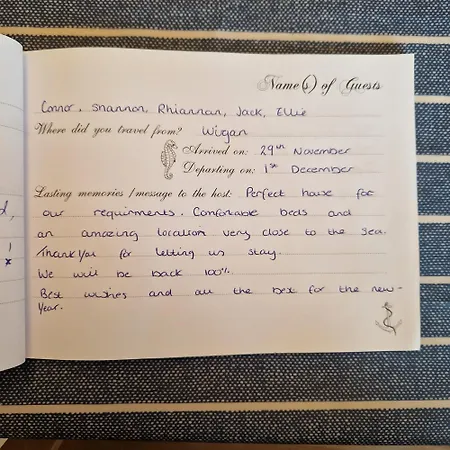 Name(s) of Guests
Connor, Shannon, Rhiannan, Jack, Ellie
Where did you travel from? Wigan
Arrived on: 29th November
Departing on: 1st December
Lasting memories / message to the host: Perfect house for
our requirments. Comfortable beds and
an amazing location very close to the sea.
Thankyou for letting us stay.
We will be back 100%.
Best wishes and all the best for the new-
year.
d,
!
x